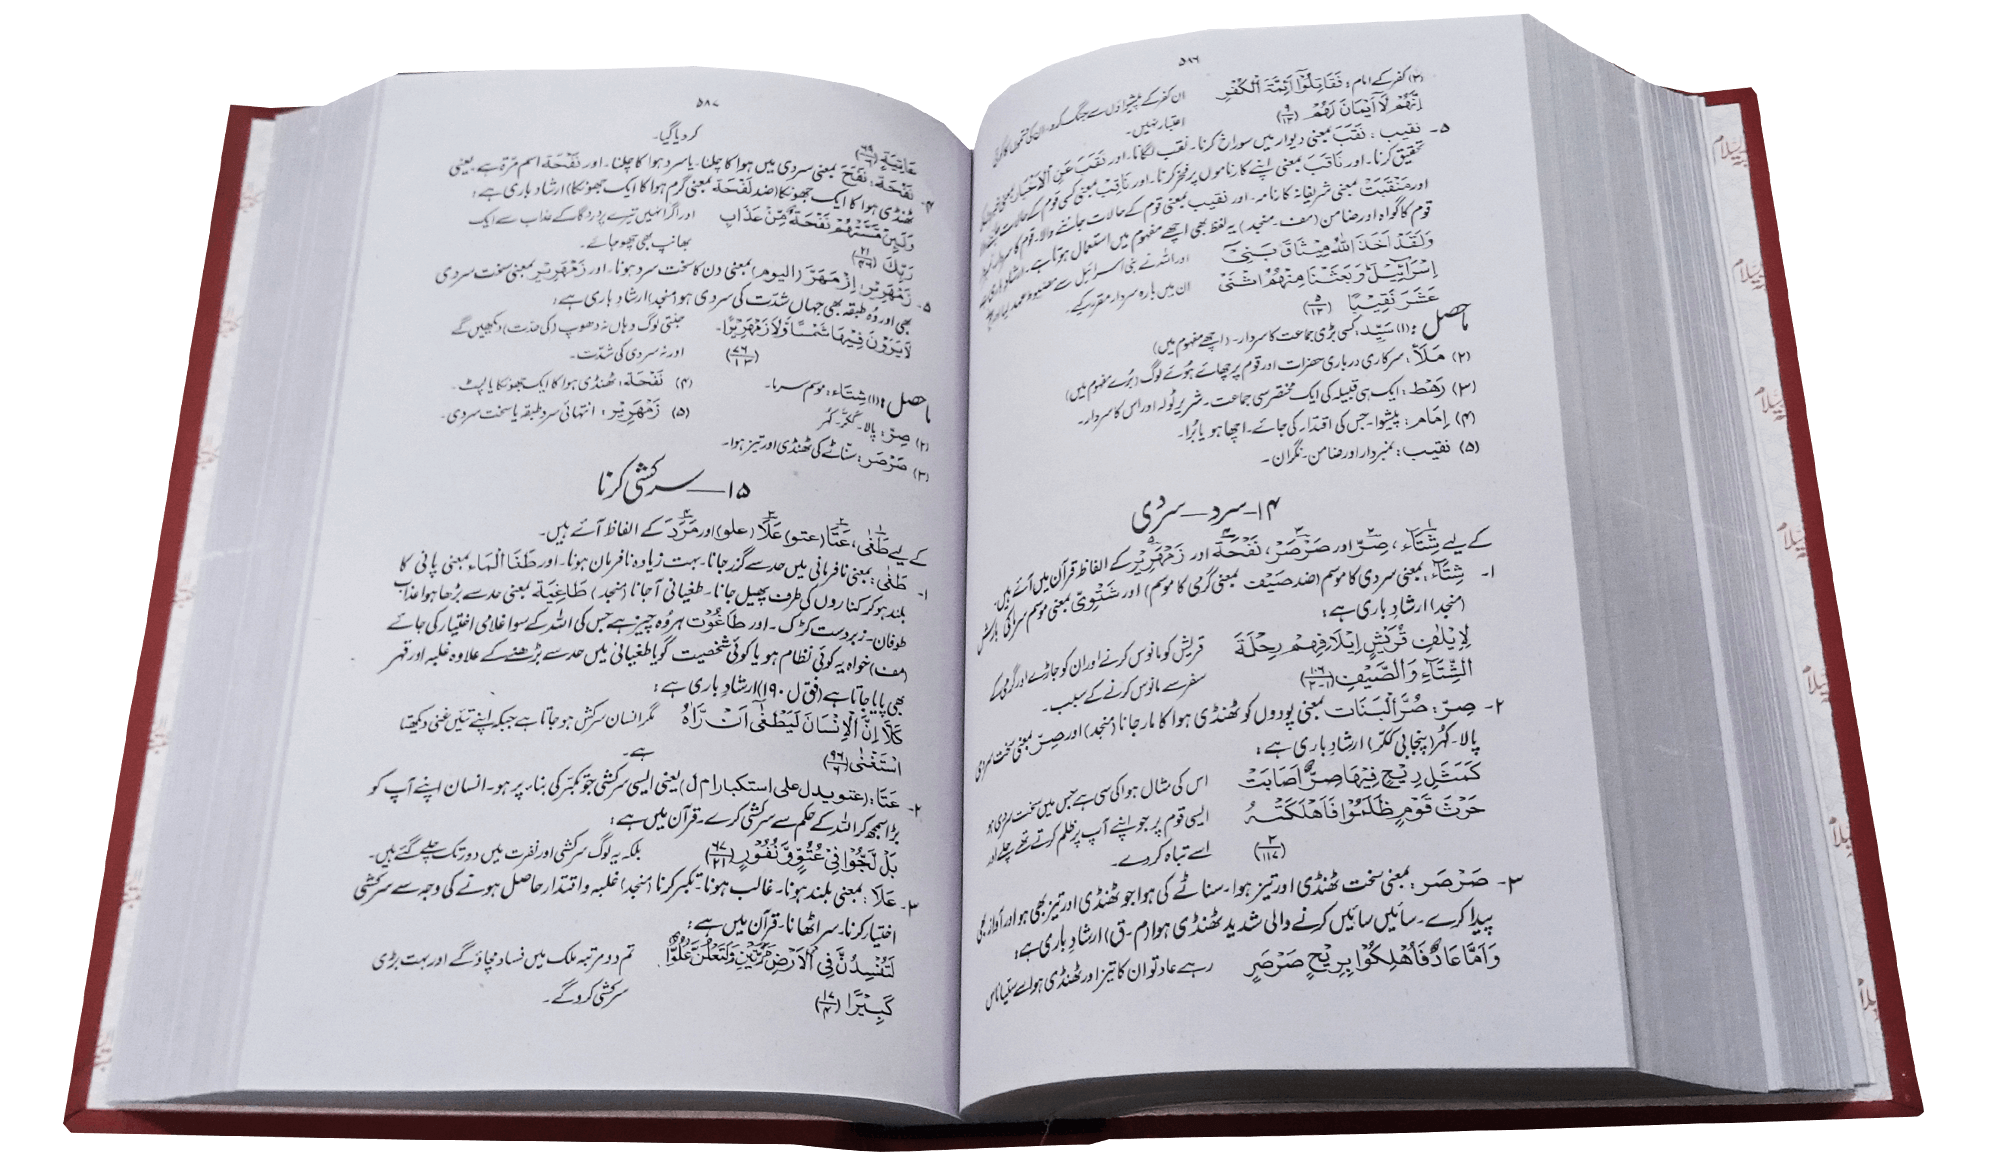 ۵۸۶
(۲) کفر کے امام: فَقَاتِلُوْٓا اَئِمَّةَ الْكُفْرِ ان کفر کے پیشواؤں سے جنگ کرو۔ ان کی قسموں کا کوئی
اِنَّهُمْ لَآ اَيْمَانَ لَهُمْ (۹/۱۲) اعتبار نہیں۔
۵۔ نقیب: نَقَبَ بمعنی دیوار میں سوراخ کرنا۔ نقب لگانا۔ اور نَقَبَ عَنِ الْاَخْبَار بمعنی
تحقیق کرنا۔ اور نَاقَبَ بمعنی اپنے کارناموں پر فخر کرنا۔ اور نَاقِبَ بمعنی کسی قوم کے حالات
اور مَنْقَبَت بمعنی شریفانہ کارنامہ۔ اور نقیب بمعنی قوم کے حالات جاننے والا۔ قوم کا سردار۔
قوم کا گواہ اور ضامن (مف۔ منجد) یہ لفظ بھی اچھے مفہوم میں استعمال ہوتا ہے۔ ارشاد باری
وَلَقَدْ اَخَذَ اللهُ مِيْثَاقَ بَنِيْٓ اور اللہ نے بنی اسرائیل سے مضبوط عہد لیا اور
اِسْرَآئِيْلَ وَبَعَثْنَا مِنْهُمُ اثْنَيْ ان میں بارہ سردار مقرر کیے۔
عَشَرَ نَقِيْبًا (۵/۱۲)
ماحصل: (۱) سَیِّد: کسی بڑی جماعت کا سردار۔ (اچھے مفہوم میں)
(۲) مَلَأ: سرکاری درباری حضرات اور قوم پر چھائے ہوئے لوگ (بُرے مفہوم میں)
(۳) رَهْط: ایک ہی قبیلہ کی ایک مختصر سی جماعت۔ شریر ٹولہ اور اس کا سردار۔
(۴) اِمَام: پیشوا۔ جس کی اقتدا کی جائے۔ اچھا ہو یا بُرا۔
(۵) نقیب: نمبردار اور ضامن۔ نگران۔
۱۴۔ سرد — سردی
کے لیے شِتَآء، صِرّ اور صَرْصَر، نَفْحَة اور زَمْهَرِيْر کے الفاظ قرآن میں آئے ہیں۔
۱۔ شِتَآء: بمعنی سردی کا موسم (ضد صَيْف بمعنی گرمی کا موسم) اور شَتْوِیّ بمعنی موسم سرما کی بارش
(منجد) ارشاد باری ہے:
لِاِيْلٰفِ قُرَيْشٍ اِيْلَافِهِمْ رِحْلَةَ قریش کو مانوس کرنے اور ان کو جاڑے اور گرمی کے
الشِّتَآءِ وَالصَّيْفِ (۱۰۶/۱-۲) سفر سے مانوس کرنے کے سبب۔
۲۔ صِرّ: صُرَّ النَّبَات بمعنی پودوں کو ٹھنڈی ہوا کا مار جانا (منجد) اور صِرّ بمعنی سخت سردی
پالا۔ کُہر (پنجابی ککر) ارشاد باری ہے:
كَمَثَلِ رِيْحٍ فِيْهَا صِرٌّ اَصَابَتْ اس کی مثال ہوا کی سی ہے جس میں سخت سردی ہو
حَرْثَ قَوْمٍ ظَلَمُوْٓا فَاَهْلَكَتْهُ ایسی قوم پر جو اپنے آپ پر ظلم کرتے تھے چلے اور
(۳/۱۱۷) اسے تباہ کر دے۔
۳۔ صَرْصَر: بمعنی سخت ٹھنڈی اور تیز ہوا۔ سناٹے کی ہوا جو ٹھنڈی اور تیز بھی ہو اور آواز بھی
پیدا کرے۔ سائیں سائیں کرنے والی شدید ٹھنڈی ہوا (م۔ق) ارشاد باری ہے:
وَاَمَّا عَادٌ فَاُهْلِكُوْا بِرِيْحٍ صَرْصَرٍ رہے عاد تو ان کا تیز اور ٹھنڈی ہوا سے ستیاناس
۵۸۷
عَاتِيَةٍ (۶۹/۶) کر دیا گیا۔
۴۔ نَفْحَة: نَفَحَ بمعنی سردی میں ہوا کا چلنا۔ یا سرد ہوا کا چلنا۔ اور نَفْحَة اسم مرّۃ ہے۔ یعنی
ٹھنڈی ہوا کا ایک جھونکا (ضد لَفْحَة بمعنی گرم ہوا کا ایک جھونکا) ارشاد باری ہے:
وَلَئِنْ مَّسَّتْهُمْ نَفْحَةٌ مِّنْ عَذَابِ اور اگر انہیں تیرے پروردگار کے عذاب سے ایک
رَبِّكَ (۲۱/۴۶) بھانپ بھی چھو جائے۔
۵۔ زَمْهَرِيْر: اِزْمَهَرَّ (الیوم) بمعنی دن کا سخت سرد ہونا۔ اور زَمْهَرِيْر بمعنی سخت سردی
بھی اور وُہ طبقہ بھی جہاں شدّت کی سردی ہو (منجد) ارشاد باری ہے:
لَا يَرَوْنَ فِيْهَا شَمْسًا وَّلَا زَمْهَرِيْرًا۔ جنتی لوگ وہاں نہ دھوپ (کی حدت) دیکھیں گے
(۷۶/۱۳) اور نہ سردی کی شدّت۔
ماحصل: (۱) شِتَاء: موسم سرما۔ (۴) نَفْحَة: ٹھنڈی ہوا کا ایک جھونکا یا لپٹ۔
(۲) صِرّ: پالا۔ ککّر۔ کُہر (۵) زَمْهَرِيْر: انتہائی سرد طبقہ یا سخت سردی۔
(۳) صَرْصَر: سناٹے کی ٹھنڈی اور تیز ہوا۔
۱۵ — سرکشی کرنا
کے لیے طَغٰی، عَتَا (عتو) عَلَا (علو) اور مَرَدَ کے الفاظ آئے ہیں۔
۱۔ طَغٰی: بمعنی نافرمانی میں حد سے گزر جانا۔ بہت زیادہ نافرمان ہونا۔ اور طَغَا الْمَاء بمعنی پانی کا
بلند ہو کر کناروں کی طرف پھیل جانا۔ طغیانی آ جانا (منجد) طَاغِيَة بمعنی حد سے بڑھا ہوا عذاب
طوفان۔ زبردست کڑک۔ اور طَاغُوْت ہر وُہ چیز ہے جس کی اللہ کے سوا غلامی اختیار کی جائے
(مف) خواہ یہ کوئی نظام ہو یا کوئی شخصیت گویا طغیانی میں حد سے بڑھنے کے علاوہ غلبہ اور قہر
بھی پایا جاتا ہے (فق ل ۱۹۰) ارشاد باری ہے:
كَلَّآ اِنَّ الْاِنْسَانَ لَيَطْغٰٓى اَنْ رَّاٰهُ مگر انسان سرکش ہو جاتا ہے جبکہ اپنے تئیں غنی دیکھتا
اسْتَغْنٰى (۹۶/۶) ہے۔
۲۔ عَتَا: (عتو یدل علی استکبار م ل) یعنی ایسی سرکشی جو تکبر کی بناء پر ہو۔ انسان اپنے آپ کو
بڑا سمجھ کر اللہ کے حکم سے سرکشی کرے۔ قرآن میں ہے:
بَلْ لَّجُّوْا فِيْ عُتُوٍّ وَّنُفُوْرٍ (۶۷/۲۱) بلکہ یہ لوگ سرکشی اور نفرت میں دور تک چلے گئے ہیں۔
۳۔ عَلَا: بمعنی بلند ہونا۔ غالب ہونا۔ تکبر کرنا (منجد) غلبہ و اقتدار حاصل ہونے کی وجہ سے سرکشی
اختیار کرنا۔ سر اٹھانا۔ قرآن میں ہے:
لَتُفْسِدُنَّ فِي الْاَرْضِ مَرَّتَيْنِ وَلَتَعْلُنَّ عُلُوًّا تم دو مرتبہ ملک میں فساد مچاؤ گے اور بہت بڑی
كَبِيْرًا (۱۷/۴) سرکشی کرو گے۔